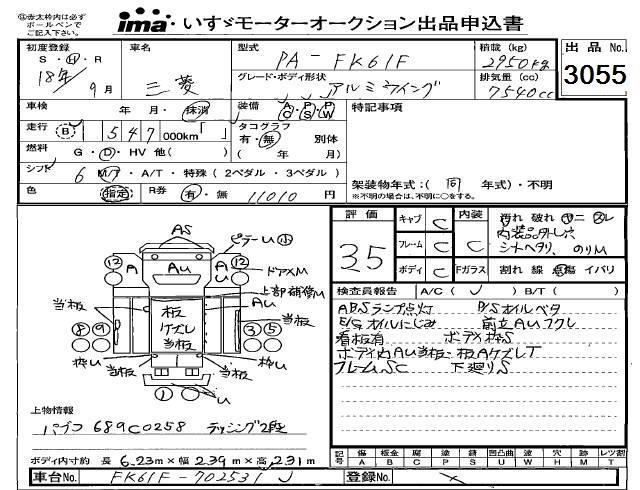 ◎赤太枠内は必ず
ボールペンで
ご記入下さい。
ima・いすゞモーターオークション出品申込書
初度登録
S・H・R
18年
9月
車名
三菱
型式
PA-FK61F
グレード・ボディ形状
アルミウイング
積載(kg)
2950kg
排気量(cc)
7540cc
出品No.
3055
車検
年 月・抹消
装備
A/C・P/S・P/W
特記事項
走行
(B) 1 547 000km「 」
タコグラフ
有・無 別体
( 年 月)
燃料
G・D・HV 他( )
シフト
6 M/T・A/T・特殊(2ペダル・3ペダル)
色
指定
R券
有・無 11010円
架装物年式:( 同 年式)・不明
※不明の場合は、不明に○をする。
評価
3.5
キャブ C
フレーム C
ボディ C
内装
C
Fガラス
汚れ 破れ ヤニ スレ
内装品外し穴
シートヘタリ、のりM
割れ 線 点傷 イバリ
検査員報告
A/C( ) B/T( )
ABSランプ点灯 P/Sオイルベタ
E/Gオイルにじみ 前立AUフクレ
看板有 ボデメ枠S
ボディ内AU当板・板AケズレT
フレームSC 下廻りS
AS
ピラーU小
12
A
AU
A
U
12
ドアメM
上部補修M
当板
板
ケズレ
当板
AU
当板
8 9
3 5
枠U
当板
当板
枠U
1
U
上物情報
パブコ 689C0258 デッシング2段
ボディ内寸約 長 6.23m×幅 2.39m×高 2.31m
記号
傷 板金 腐 塗 錆 凹凸曲 波 穴 跡 レツ割
A B C P S U W H M T
車台No.
FK61F-702531
登録No.